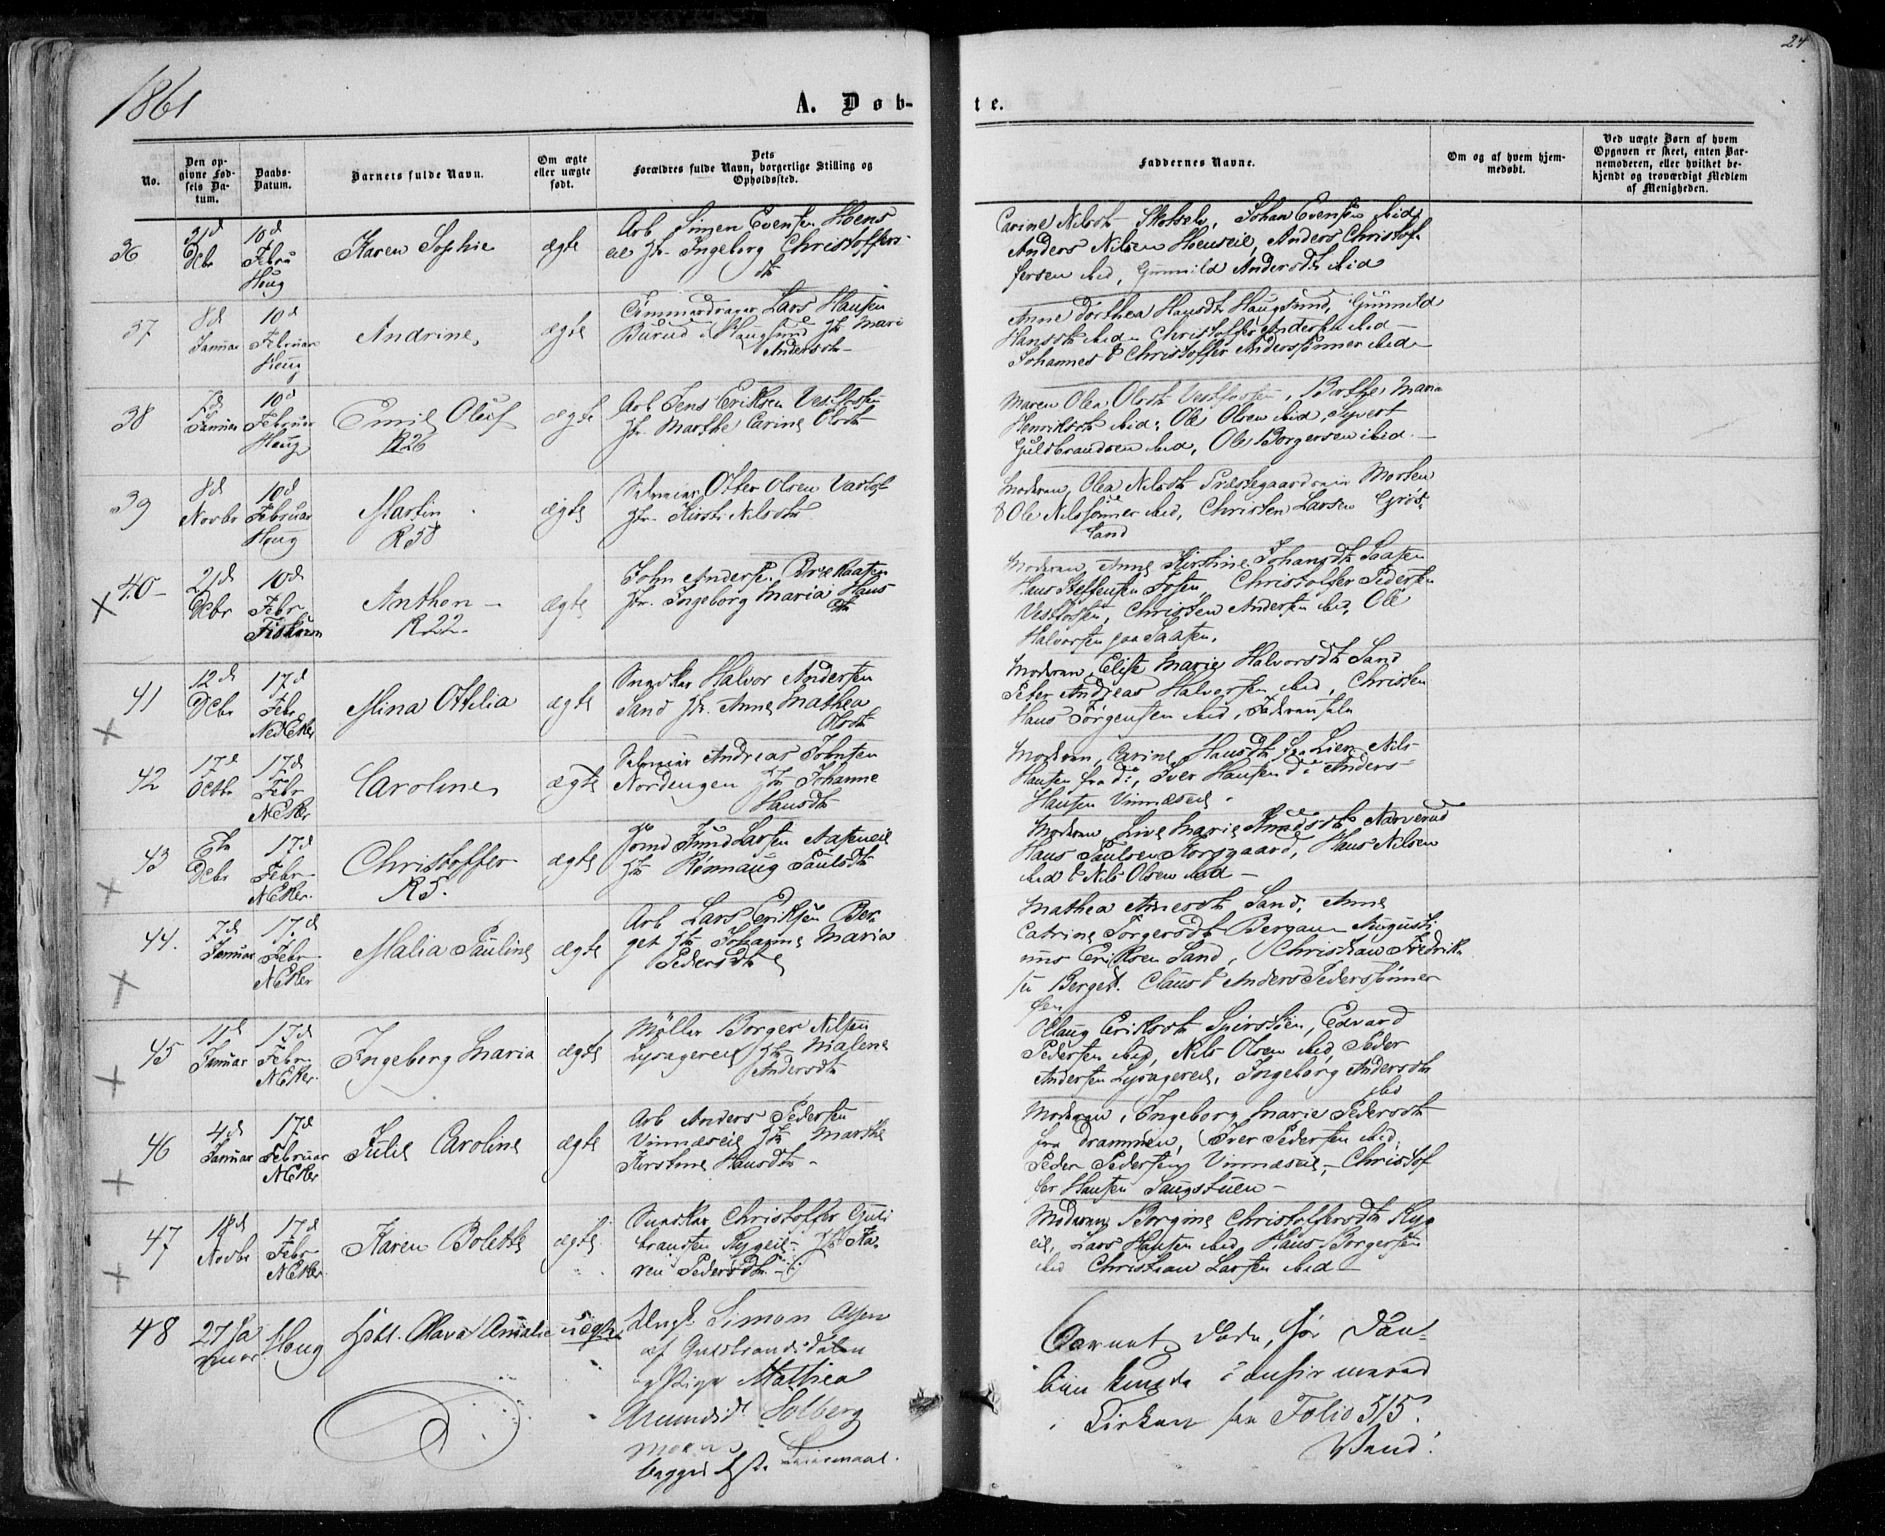 1861
A. Døb-
te.
24
No.
Den op-
givne Fød-
sels Da-
tum.
Daabs-
Datum.
Barnets fulde Navn.
Om ægte
eller uægte
født.
Dets
Forældres fulde Navn, borgerlige Stilling og
Opholdssted.
Faddernes Navne.
Om og af hvem hjem-
medøbt.
Ved uægte Børn af hvem
Opgaven er skeet, enten Bar-
nemoderen, eller hvilket be-
kjendt og troværdigt Medlem
af Menigheden.
36
21d
Dcbr
10d
Febru
Houg
Karen Sophie
ægte
Arb Simen Evensen Hoens
eie Hr. Ingeborg Christoffers
dtr
Carine Nilsdtr Johan Evensen ibid
Anders Nilsen Hoenseie, Anders Christof
fersen ibid, Gunnild Andersdtr ibid
37
8d
Januar
10d
Februar
Houg
Andrine
ægte
Tømmerdrager Lars Hansen
Burud i Haugsund Hr Mari
Andersdtr
Anne Dorthea Hansdtr Haugsund, Gunnild
Hansdtr ibid Christoffer Andersen ibid
Johannes & Christoffer Anderssønner ibid
38
7d
Januar
10d
Februar
Houg
Emil Oluf
R26
ægte
Arb Jens Eriksen Vestfossen
Hr. Marthe Carine Olsdtr
Maren Olea Olsdtr Vestfossen, Maria
Henriksdtr ibid, Ole Olsen ibid, Syvert
Guldbrandsen ibid, Ole Borgersen ibid.
39
8d
Novbr
10d
Februar
Houg
Martin
R58
ægte
Otter Olsen
Hr. Kirsti Nilsdtr
Moderen, Olea Nilsdtr Præstegaard Morten
& Ole Nilssønner ibid, Christen Larsen Grøs
land
40
21d
Dcbr
10d
Febr
Fiskum
Anthon
R22
ægte
John Andersen
Hr. Ingeborg Maria Hans
dtr
Moderen, Anne Kirstine Johansdtr Saasen
Hans Steffensen Christoffer Pedersen
Vestfossen, Christen Andersen ibid, Ole
Halvorsen paa Saasen.
41
12d
Dcbr
17d
Febr
NedEker
Mina Othilia
ægte
Snedker Halvor Andersen
Sand Hr. Anne Mathea
Olsdtr
Moderen, Elise Marie Halvorsdtr Sand
Peter Andreas Halvorsen ibid, Christen
Hans Jørgensen ibid, Faderen selv
42
17d
Octbr
17d
Febr
NEker
Caroline
ægte
Selveier Andreas Johnsen
Nordengen Hr Johanne
Hansdtr
Moderen, Carine Hansdtr fra Lien Nils
Hansen fra do, Iver Hansen do Anders
Hansen Vinnæseie.
43
Dcbr
17d
Febr
NEker.
Christoffer
R5.
ægte
Larsen Aaseneie
Hr Rønnaug Paulsdtr
Moderen, Live Marie Narverud
Hans Paulsen Korsgaard, Hans Nilsen
ibid & Nils Olsen ibid
44.
7d
Januar
17d
Febr
NEker
Malia Pauline
ægte
Arb Lars Eriksen Ber
get Hr Johanne Maria
Pedersdtr
Mathea Sand, Anne
Catrine Torgersdtr Bergan Augusti
nus Eriksen Sand, Christian Fredrik
sen Berget. Claus & Anders Pederssønner
45
11d
Januar
17d
Febr
NEker.
Ingeborg Maria
ægte
Møller Borger Nilsen
Lyragereie Hr Malene
Andersdtr
Ollaug Eriksdtr Spirstøen, Edvard
Pedersen ibid, Nils Olsen ibid, Peder
Andersen Lyragereie, Ingeborg Andersdtr
ibid
46
4d
Januar
17d
Februar
NEker
Julie Caroline
ægte
Arb Anders Pedersen
Vinnæseie Hr Marthe
Kirstine Hansdtr
Moderen, Ingeborg Marie Pedersdtr
fra Drammen, Iver Pedersen ibid,
Peder Pedersen, Vinnæseie, Christof
fer Hansen Saugstuen
47
18d
Novbr
17d
Febr
NEker.
Karen Bolette
ægte
Snedker Christoffer Gul
brandsen Rygeie Hr Ka
ren Pedersdtr
Moderen, Borgine Christoffersdtr Ryg
eie, Lars Hansen ibid, Hans Borgersen
ibid Christian Larsen ibid
48
27 Ja
nuar
Houg
Olava Amalie
uægte
Ungk. Simon Olsen
af Guldbrandsdalen
og Pige Mathea
Amundsd. Solberg
moen
begges 1ste Leiermaal.
Barnet døde, før Daa-
ben kunde confirmered
i Kirken see Folio 515.
Vend!